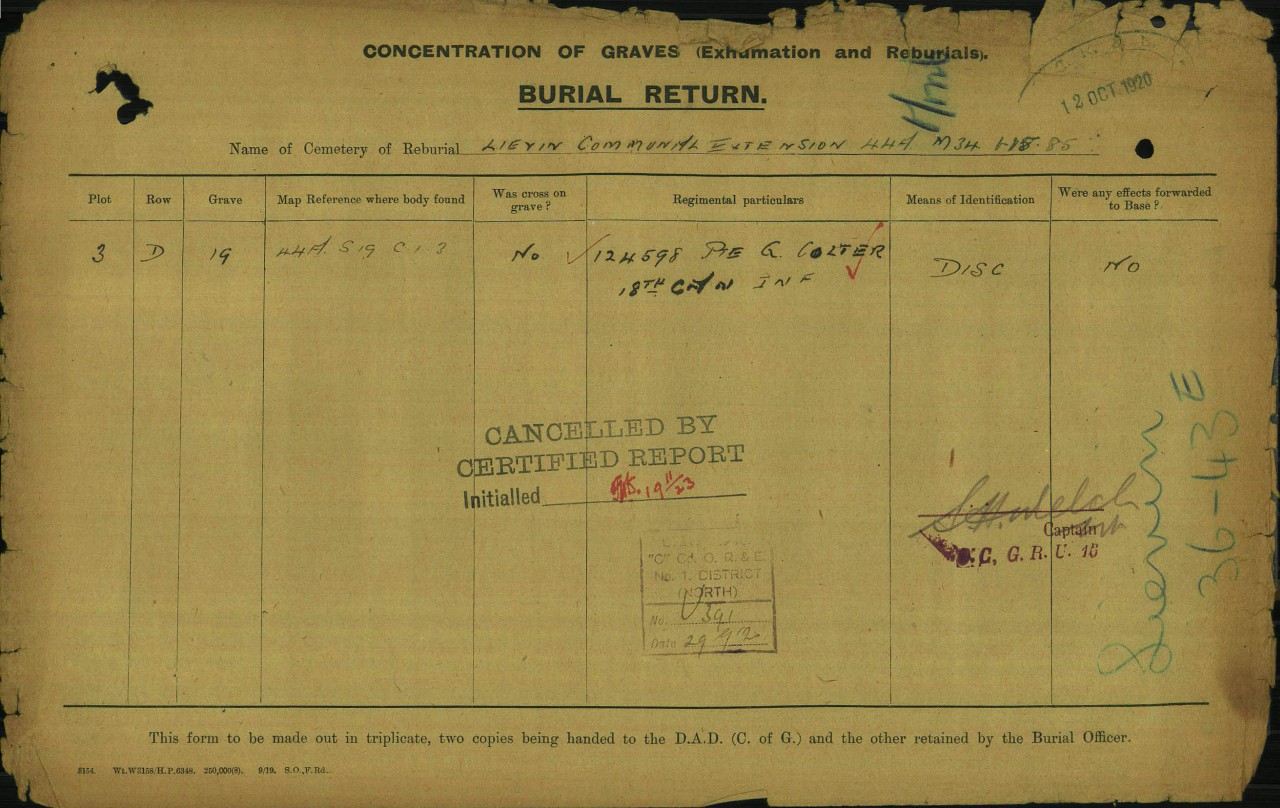 CONCENTRATION OF GRAVES (Exhumation and Reburials).
BURIAL RETURN.
12 OCT. 1920
Name of Cemetery of Reburial LIEVIN COMMUNAL EXTENSION 44A M34 85
Plot Row Grave Map Reference where body found Was cross on grave? Regimental particulars Means of Identification Were any effects forwarded to Base?
3 D 19 44A. S19 C 1.3 No 124598 PTE G. COLTER DISC NO
18TH CAN INF
CANCELLED BY
CERTIFIED REPORT
Initialled 19 11/23
Captain
O.C, G. R. U. 15
"C" Cd. O. R. & E.
No. 1. DISTRICT
(NORTH)
No. 391
Date 29/9/20
Lievin
36-43 E
This form to be made out in triplicate, two copies being handed to the D.A.D. (C. of G.) and the other retained by the Burial Officer.
8154. Wt.W3158/H.P.6348. 250,000(8). 9/19. S.O.,F.Rd.